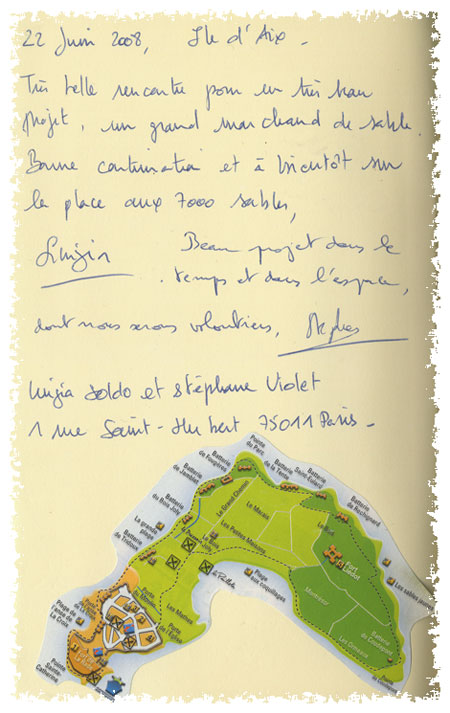 22 Juin 2008, Ile d'Aix -
Très belle rencontre pour un très beau
projet, un grand marchand de sable.
Bonne continuation et à bientôt sur
la place aux 7000 sables,
Luigia
Beau projet dans le
temps et dans l'espace,
dont nous serons volontiers,
Luigia Soldo et Stéphane Violet
1 rue Saint-Hubert 75011 Paris -
Pointe du Parc
Batterie de Fougères
Batterie de la Tente
Batterie Saint-Eulard
Batterie de Jamblet
Batterie du Bois Joly
Le Grand Chemin
Le Marais
Les Petites Maisons
Le Bois Joly
La grande plage
Batterie de Tridoux
Fort Liédot
Plage aux coquillages
Les sables jaunes
Montrésor
Les Ormeaux
Batterie de Coudepont
Les Mattes
Porte de l'Église
Plage de l'anse de La Croix
Pointe Sainte-Catherine